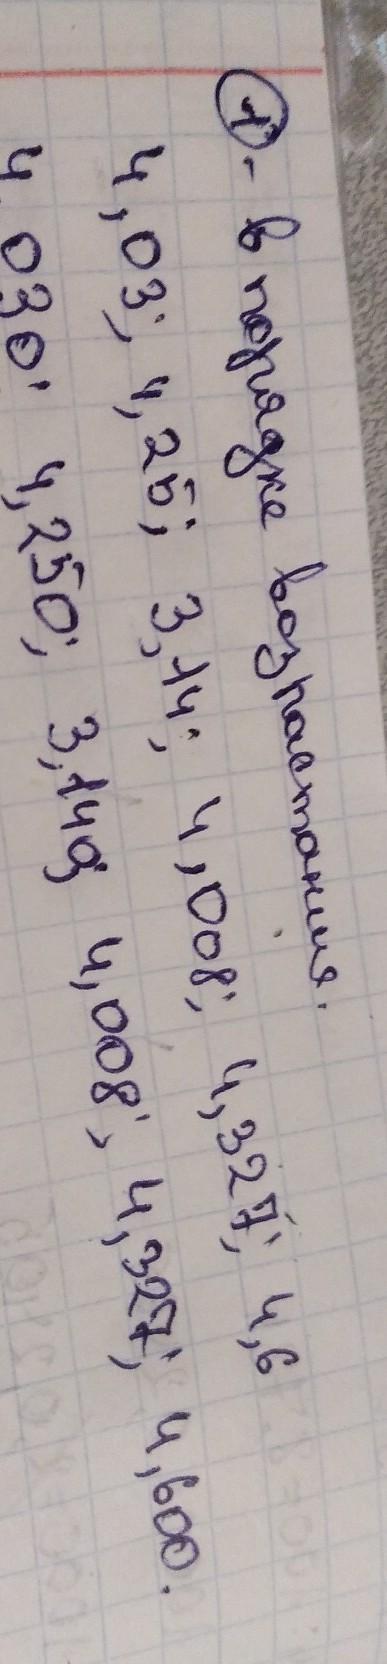 1. - в порядке возрастания.
4,03; 4,25; 3,14; 4,008; 4,327; 4,6
4,030; 4,250; 3,140; 4,008; 4,327; 4,600.